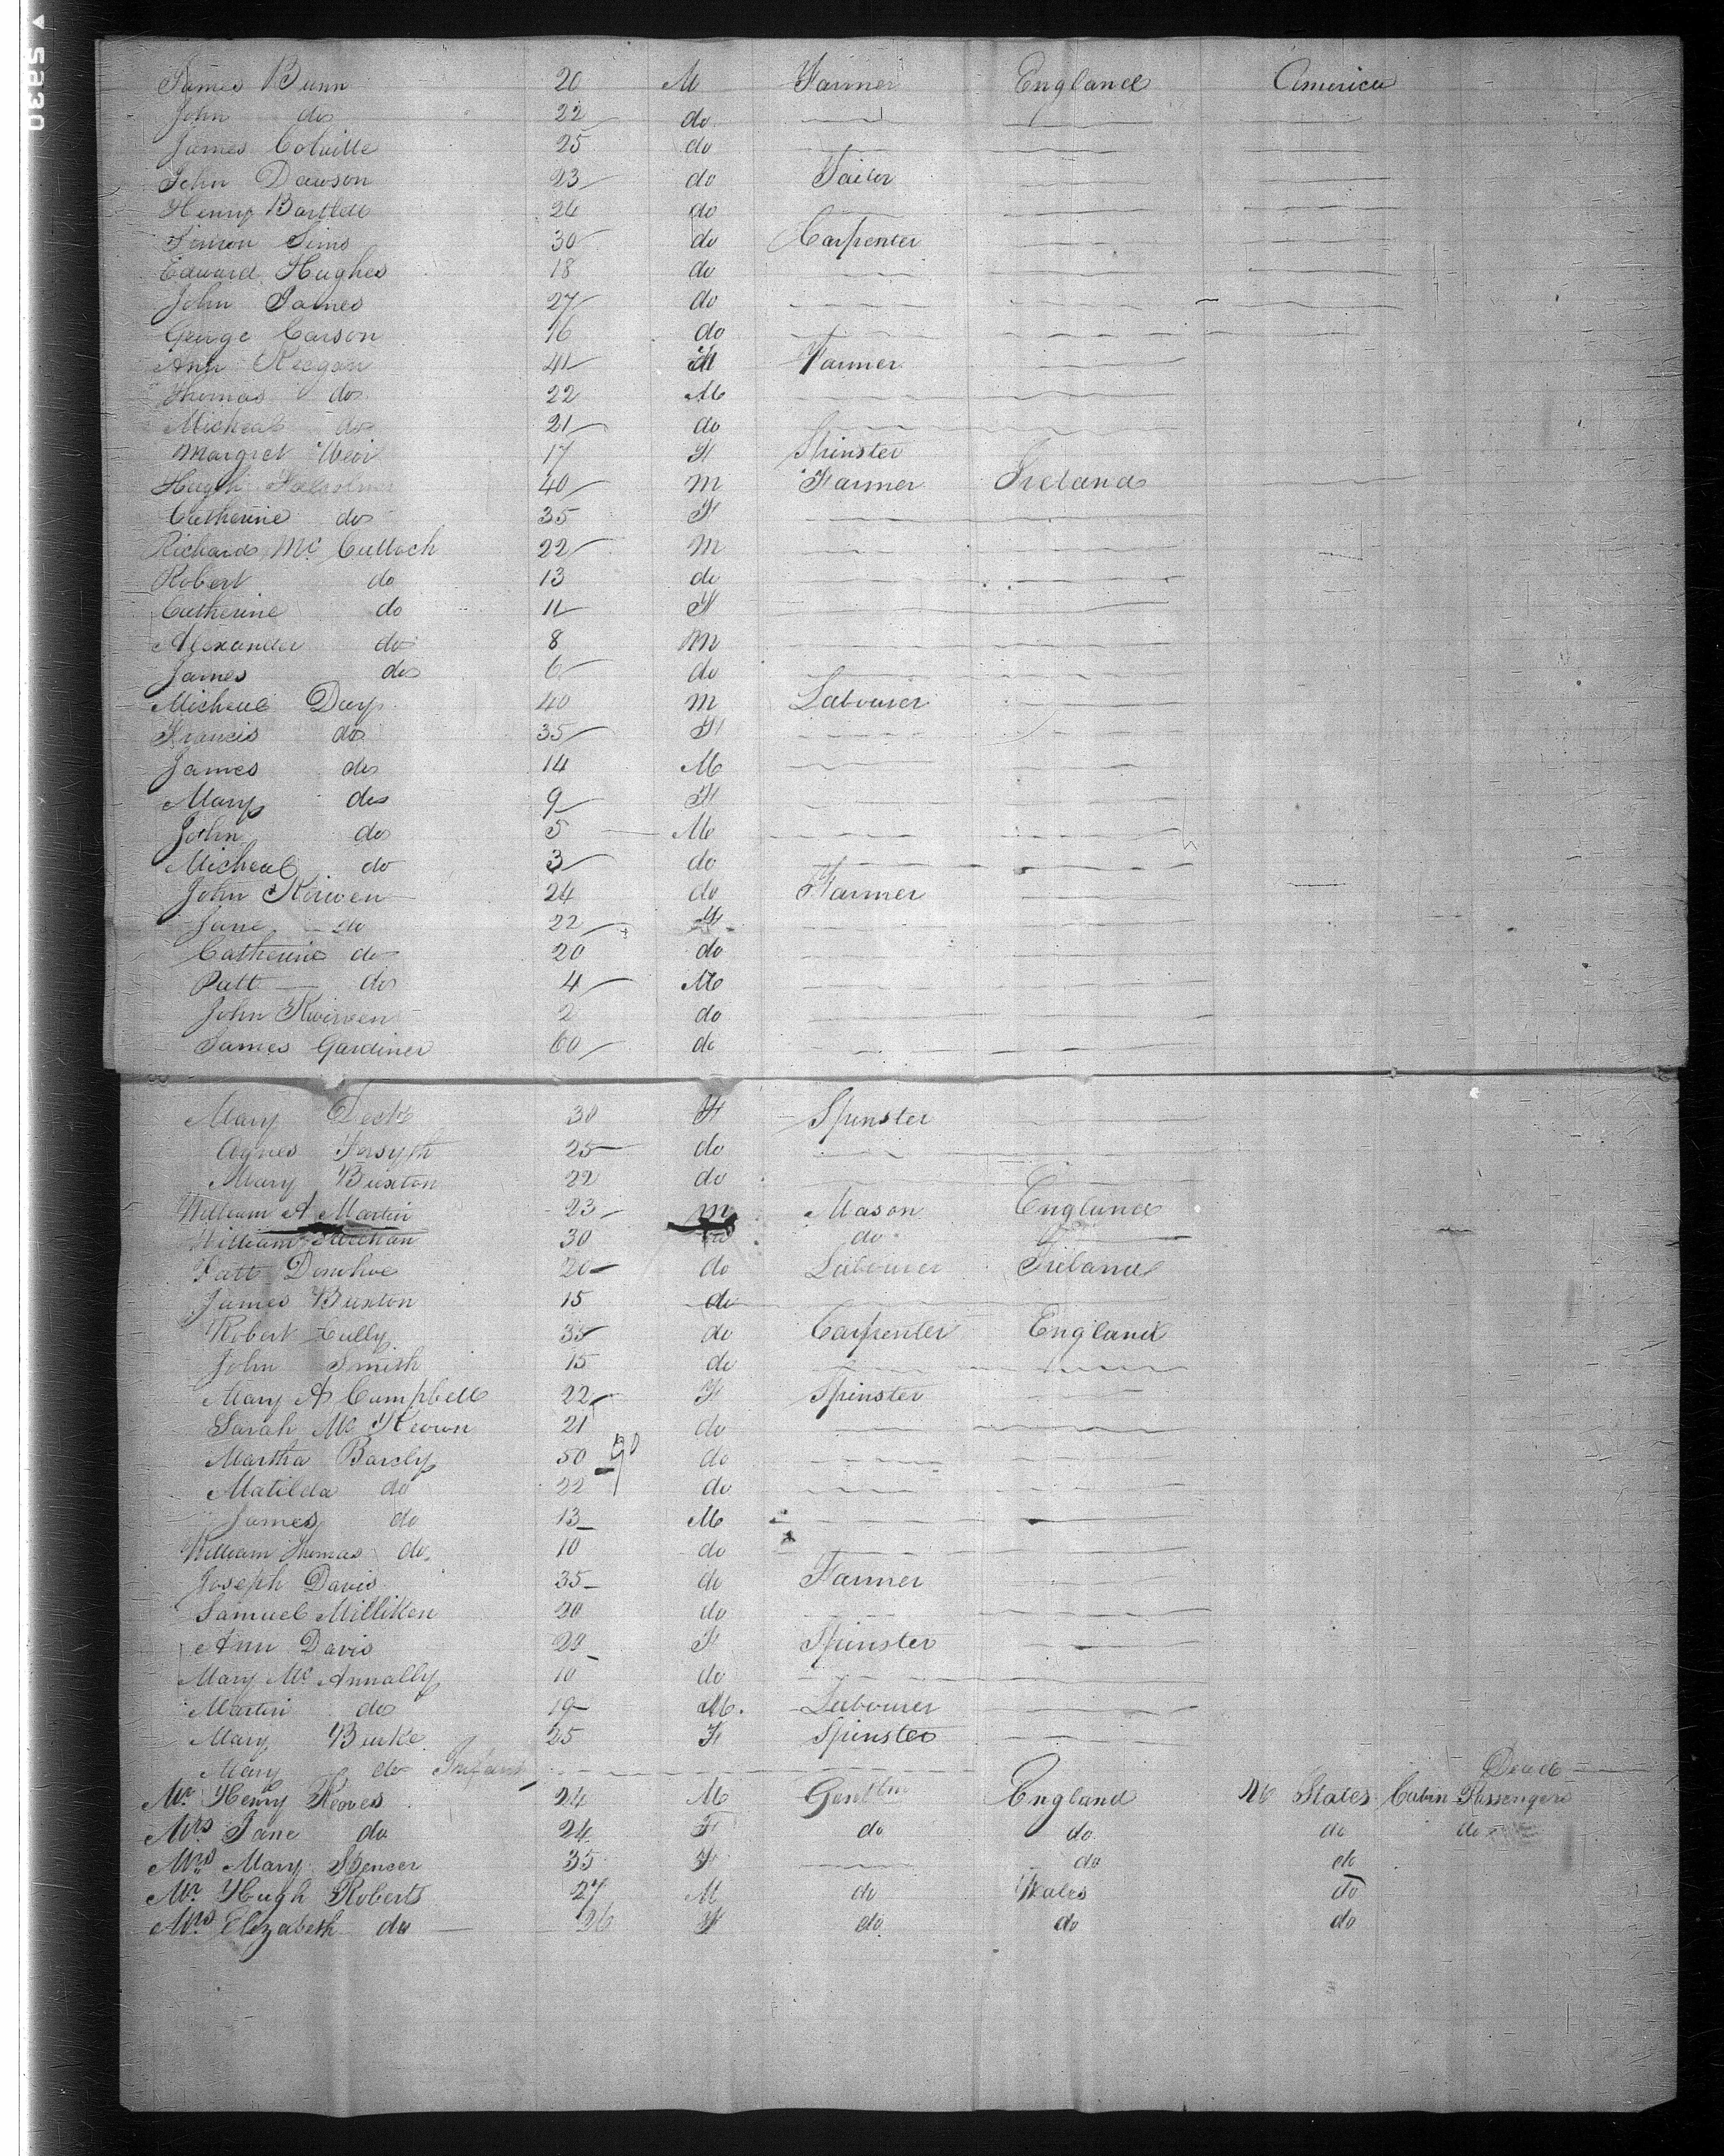 James Bunn 20 M Farmer England America
John do 22 do
James Colville 25 do
John Dawson 23 do Tailor
Henry Bartlett 24 do
Simon Sims 30 do Carpenter
Edward Hughes 18 do
John James 27 do
George Carson 16 do
Ann Keegan 41 Farmer
Thomas do 22 M
Micheal do 21 do
Margret Weir 17 F Spinster
Hugh 40 M Farmer Ireland
Catherine do 35 F
Richard Mc Culloch 22 M
Robert do 13 do
Catherine do 11 F
Alexander do 8 M
James do 6 do
Micheal Day 40 M Labourer
Francis do 35 F
James do 14 M
Mary do 9 F
John do 5 M
Micheal do 3 do
John Kirwen 24 do Farmer
Jane do 22 F
Catherine do 20 do
Patt do 4 M
John Kwirwen 2 do
James Gardiner 60 do
Mary 30 F Spinster
Agnes Forsyth 25 do
Mary Buxton 22 do
William A Martin 23 M Mason England
William 30 do do
Patt Donohoe 20 do Labourer Ireland
James Buxton 15 do
Robert Cully 35 do Carpenter England
John Smith 15 do
Mary A Campbell 22 F Spinster
Sarah Mc Keown 21 do
Martha Barcly 50 do
Matilda do 22 do
James do 13 M
William Thomas do 10 do
Joseph Davis 35 do Farmer
Samuel Milliken 20 do
Ann Davis 20 F Spinster
Mary Mc Annally 10 do
Martin do 19 M. Labourer
Mary Burke 25 F Spinster
Mary do Infant Dead
Mr. Henry Reaves 24 M Gentlm England States Cabin Passengers
Mrs. Jane do 24 F do do do do
Mrs. Mary Spencer 35 F do do
Mr. Hugh Roberts 27 M do Wales do
Mrs. Elizabeth do 26 F do do do